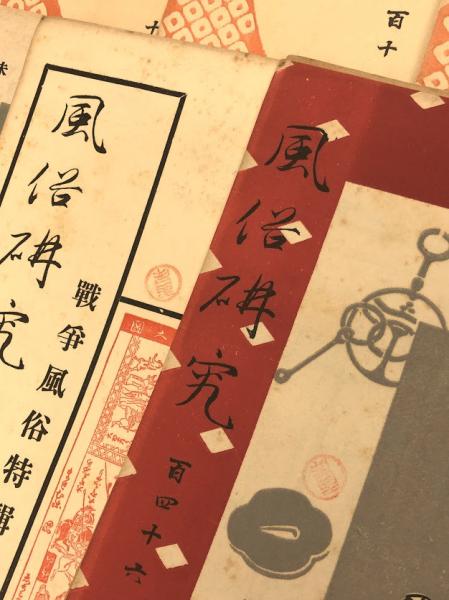 百十
風俗研究
百四十六
風俗研究
戰爭風俗特輯